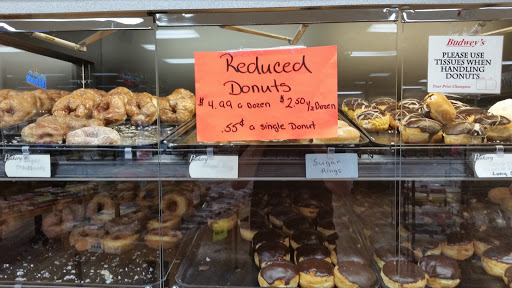 Reduced
Donuts
$4.99 a Dozen $2.50 ½ Dozen
.55¢ a single Donut
Budwey's
PLEASE USE
TISSUES WHEN
HANDLING
DONUTS
Your Price Champions
Bakery
Bakery
Sugar
Rings
Bakery
Long S